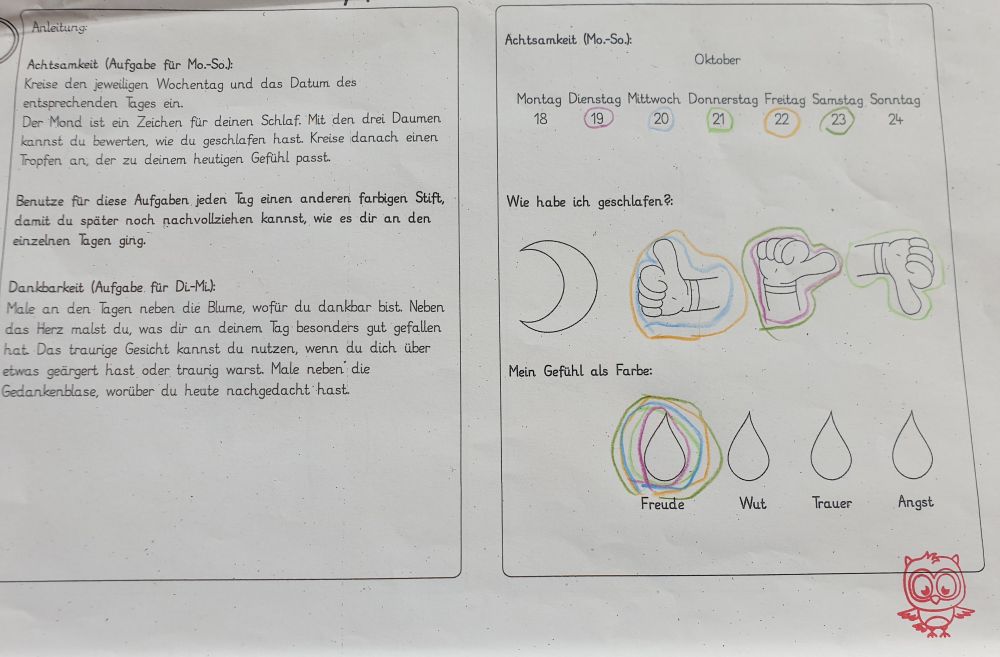 Anleitung:
Achtsamkeit (Aufgabe für Mo.-So.):
Kreise den jeweiligen Wochentag und das Datum des
entsprechenden Tages ein.
Der Mond ist ein Zeichen für deinen Schlaf. Mit den drei Daumen
kannst du bewerten, wie du geschlafen hast. Kreise danach einen
Tropfen an, der zu deinem heutigen Gefühl passt.
Benutze für diese Aufgaben jeden Tag einen anderen farbigen Stift,
damit du später noch nachvollziehen kannst, wie es dir an den
einzelnen Tagen ging.
Dankbarkeit (Aufgabe für Di.-Mi.):
Male an den Tagen neben die Blume, wofür du dankbar bist. Neben
das Herz malst du, was dir an deinem Tag besonders gut gefallen
hat. Das traurige Gesicht kannst du nutzen, wenn du dich über
etwas geärgert hast oder traurig warst. Male neben die
Gedankenblase, worüber du heute nachgedacht hast.
Achtsamkeit (Mo.-So.):
Oktober
Montag Dienstag Mittwoch Donnerstag Freitag Samstag Sonntag
18 19 20 21 22 23 24
Wie habe ich geschlafen?:
Mein Gefühl als Farbe:
Freude Wut Trauer Angst